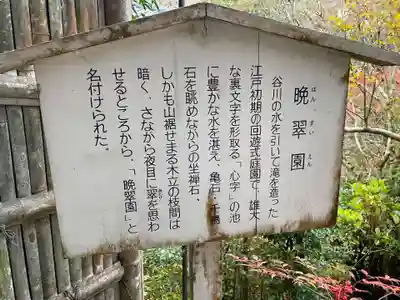 晩翠園
ばん すい えん
谷川の水を引いて滝を造った
江戸初期の回遊式庭園で、雄大
な裏文字を形取る「心字」の池
に豊かな水を湛え、亀戸・千鳥
石を眺めながらの坐禅石、
しかも山裾せまる木立の枝間は
暗く、さながら夜目に翠を思わ
せるところから、「晩翠園」と
名付けられた。